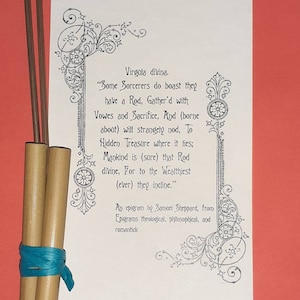 Virgula divina.
"Some Sorcerers do boast they
have a Rod, Gather'd with
Vowes and Sacrifice, And (borne
about) will strangely nod, To
Hidden Treasure where it lies;
Mankind is (sure) that Rod
divine, For to the Wealthiest
(ever) they incline."
An epigram by Samuel Sheppard, from
Epigrams theological, philosophical, and
romantick